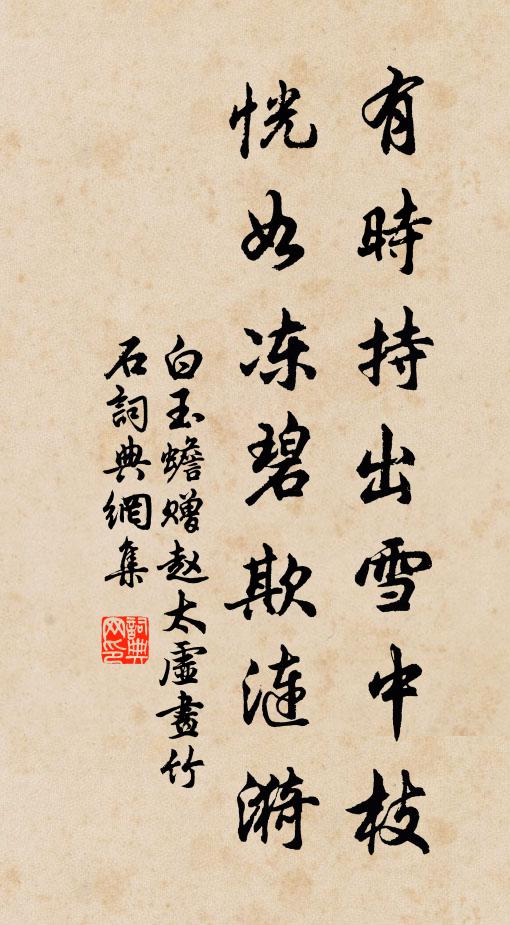 有時持出雪中枝
恍如冻碧欺涟漪
白玉蟾赠赵太虛畫竹
石詞典網集
詞典
网印